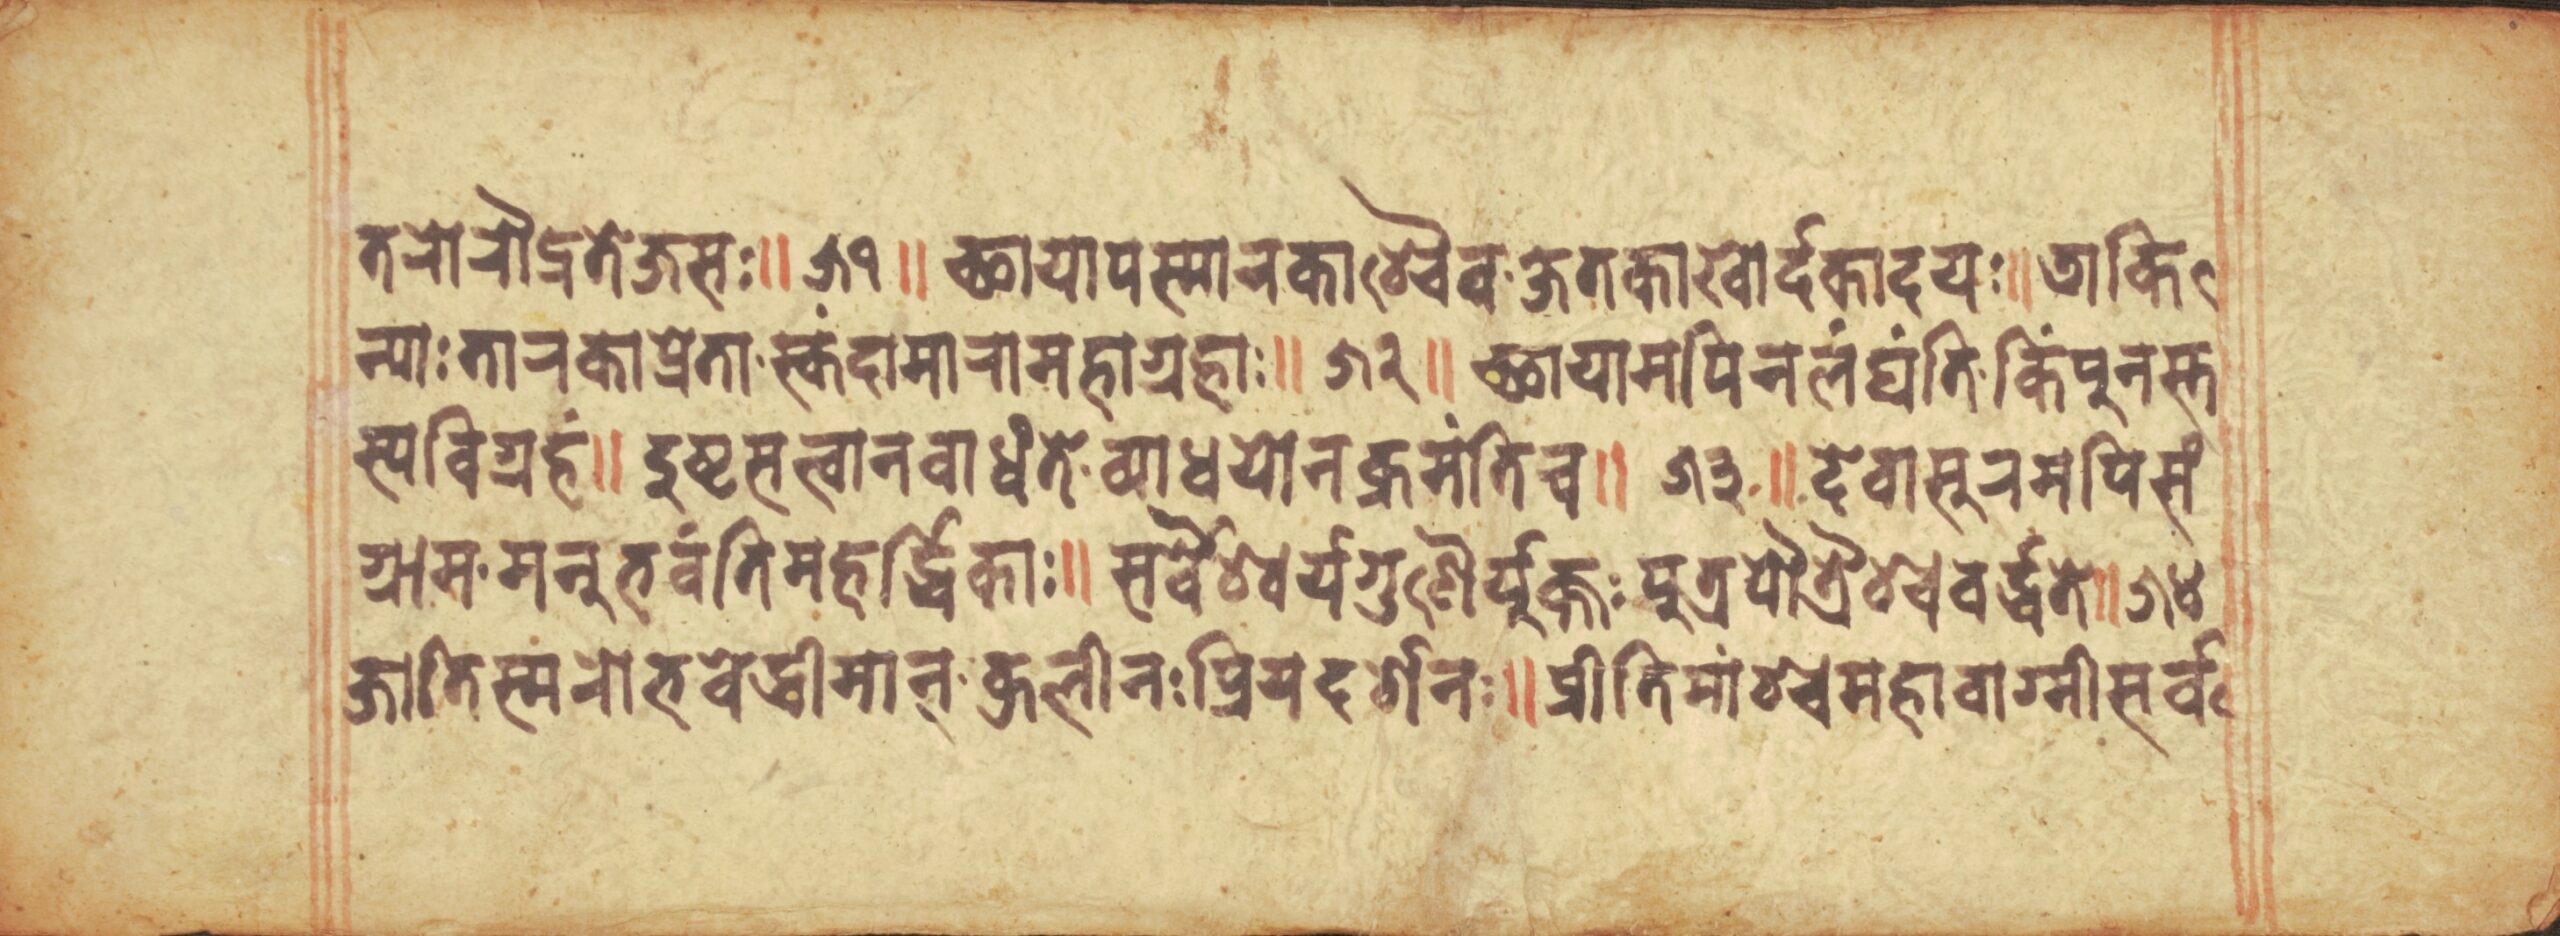 तरोरौद्रतेजसः॥ ७१ ॥ च्छायापस्मारकाश्चैव·ज्जतकाखोर्दकादयः॥ डाकि
न्याः तारकाप्रेता·स्कंदामारामहाग्रहाः॥ ७२ ॥ च्छायामपिनलंघंति·किंपुनस्त
स्यविग्रहं॥ दुष्टसत्वानवाधंते·व्याधयोनक्रमंतिच॥ ७३ ॥ देवासुरमपिसं
ग्राम·मनुभवंतिमहर्द्धिकाः॥ सर्वैश्वर्यगुणैर्युक्तः पुत्रपौत्रैश्चवर्द्धते॥ ७४
जातिस्मरोभवेद्धीमान्·कुलीनःप्रियदर्शनः॥ प्रीतिमांश्चमहावाग्मीसर्व